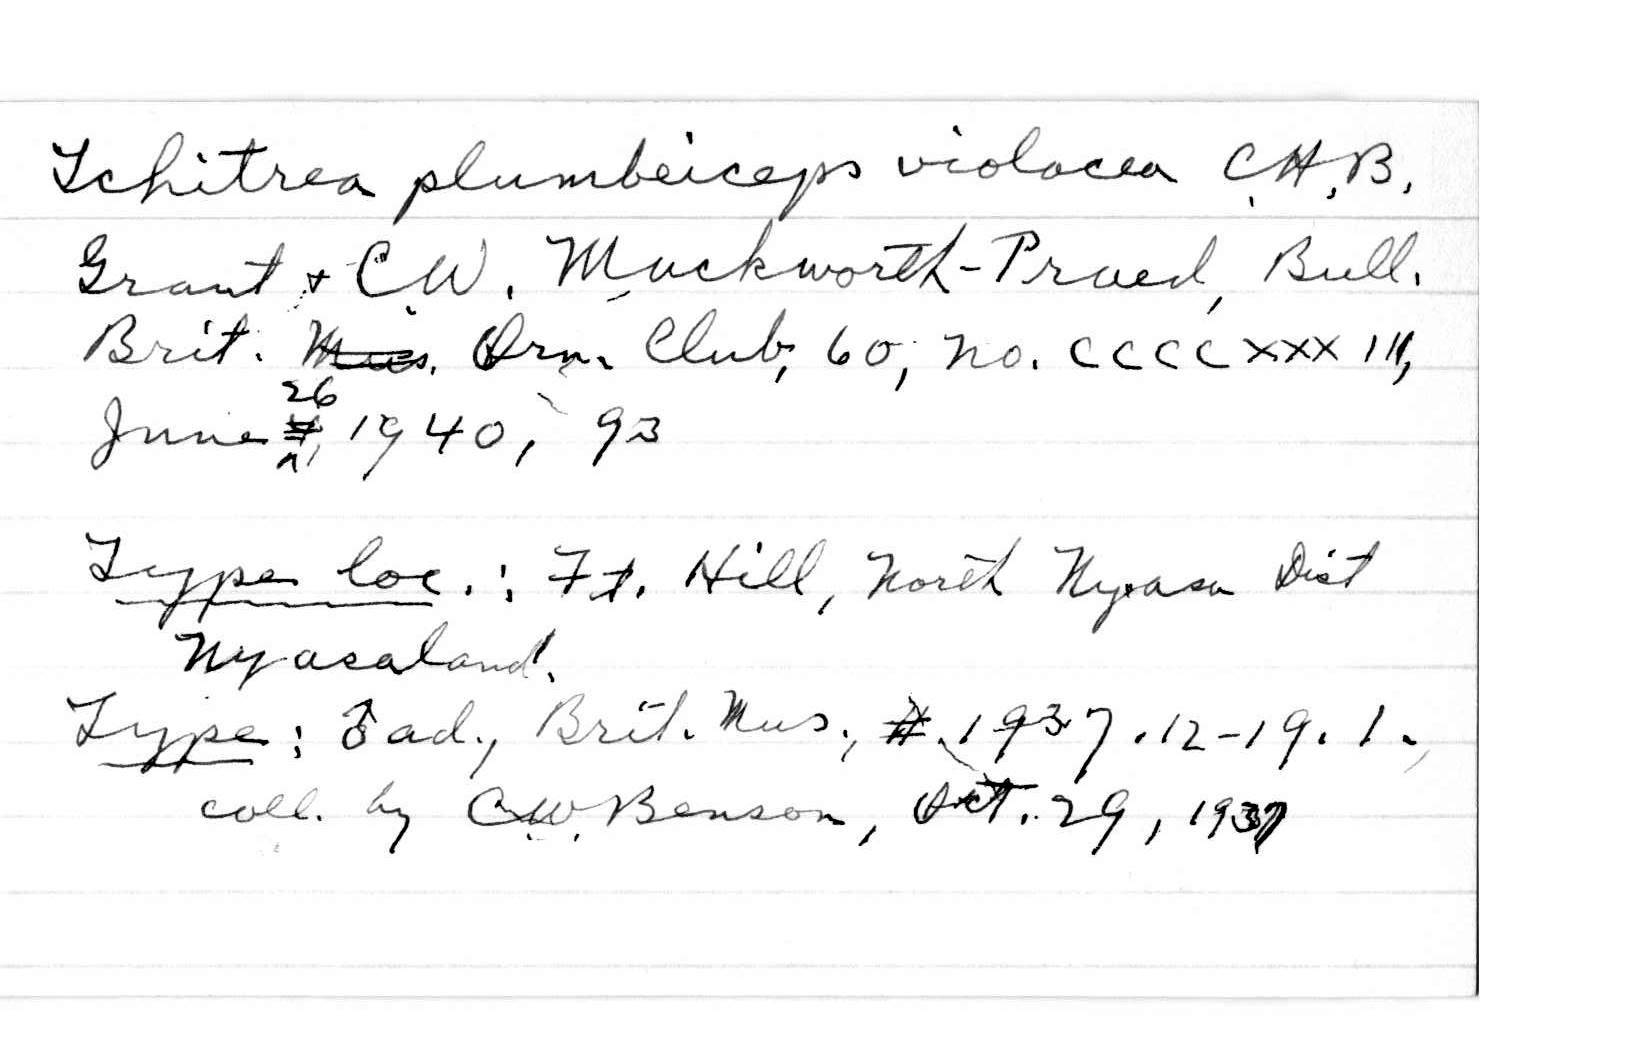 Tchitrea plumbeiceps violacea C.H.B.
Grant & C.W. Mackworth-Praed, Bull.
Brit. Mus. Orn. Club, 60, no. CCCCXXXIII,
June 26, 1940, 93
Type loc.: Ft. Hill, North Nyasa Dist
Nyasaland.
Type: ♂ ad., Brit. Mus., #.1937.12-19.1.,
coll. by C.W. Benson, Oct. 29, 1937